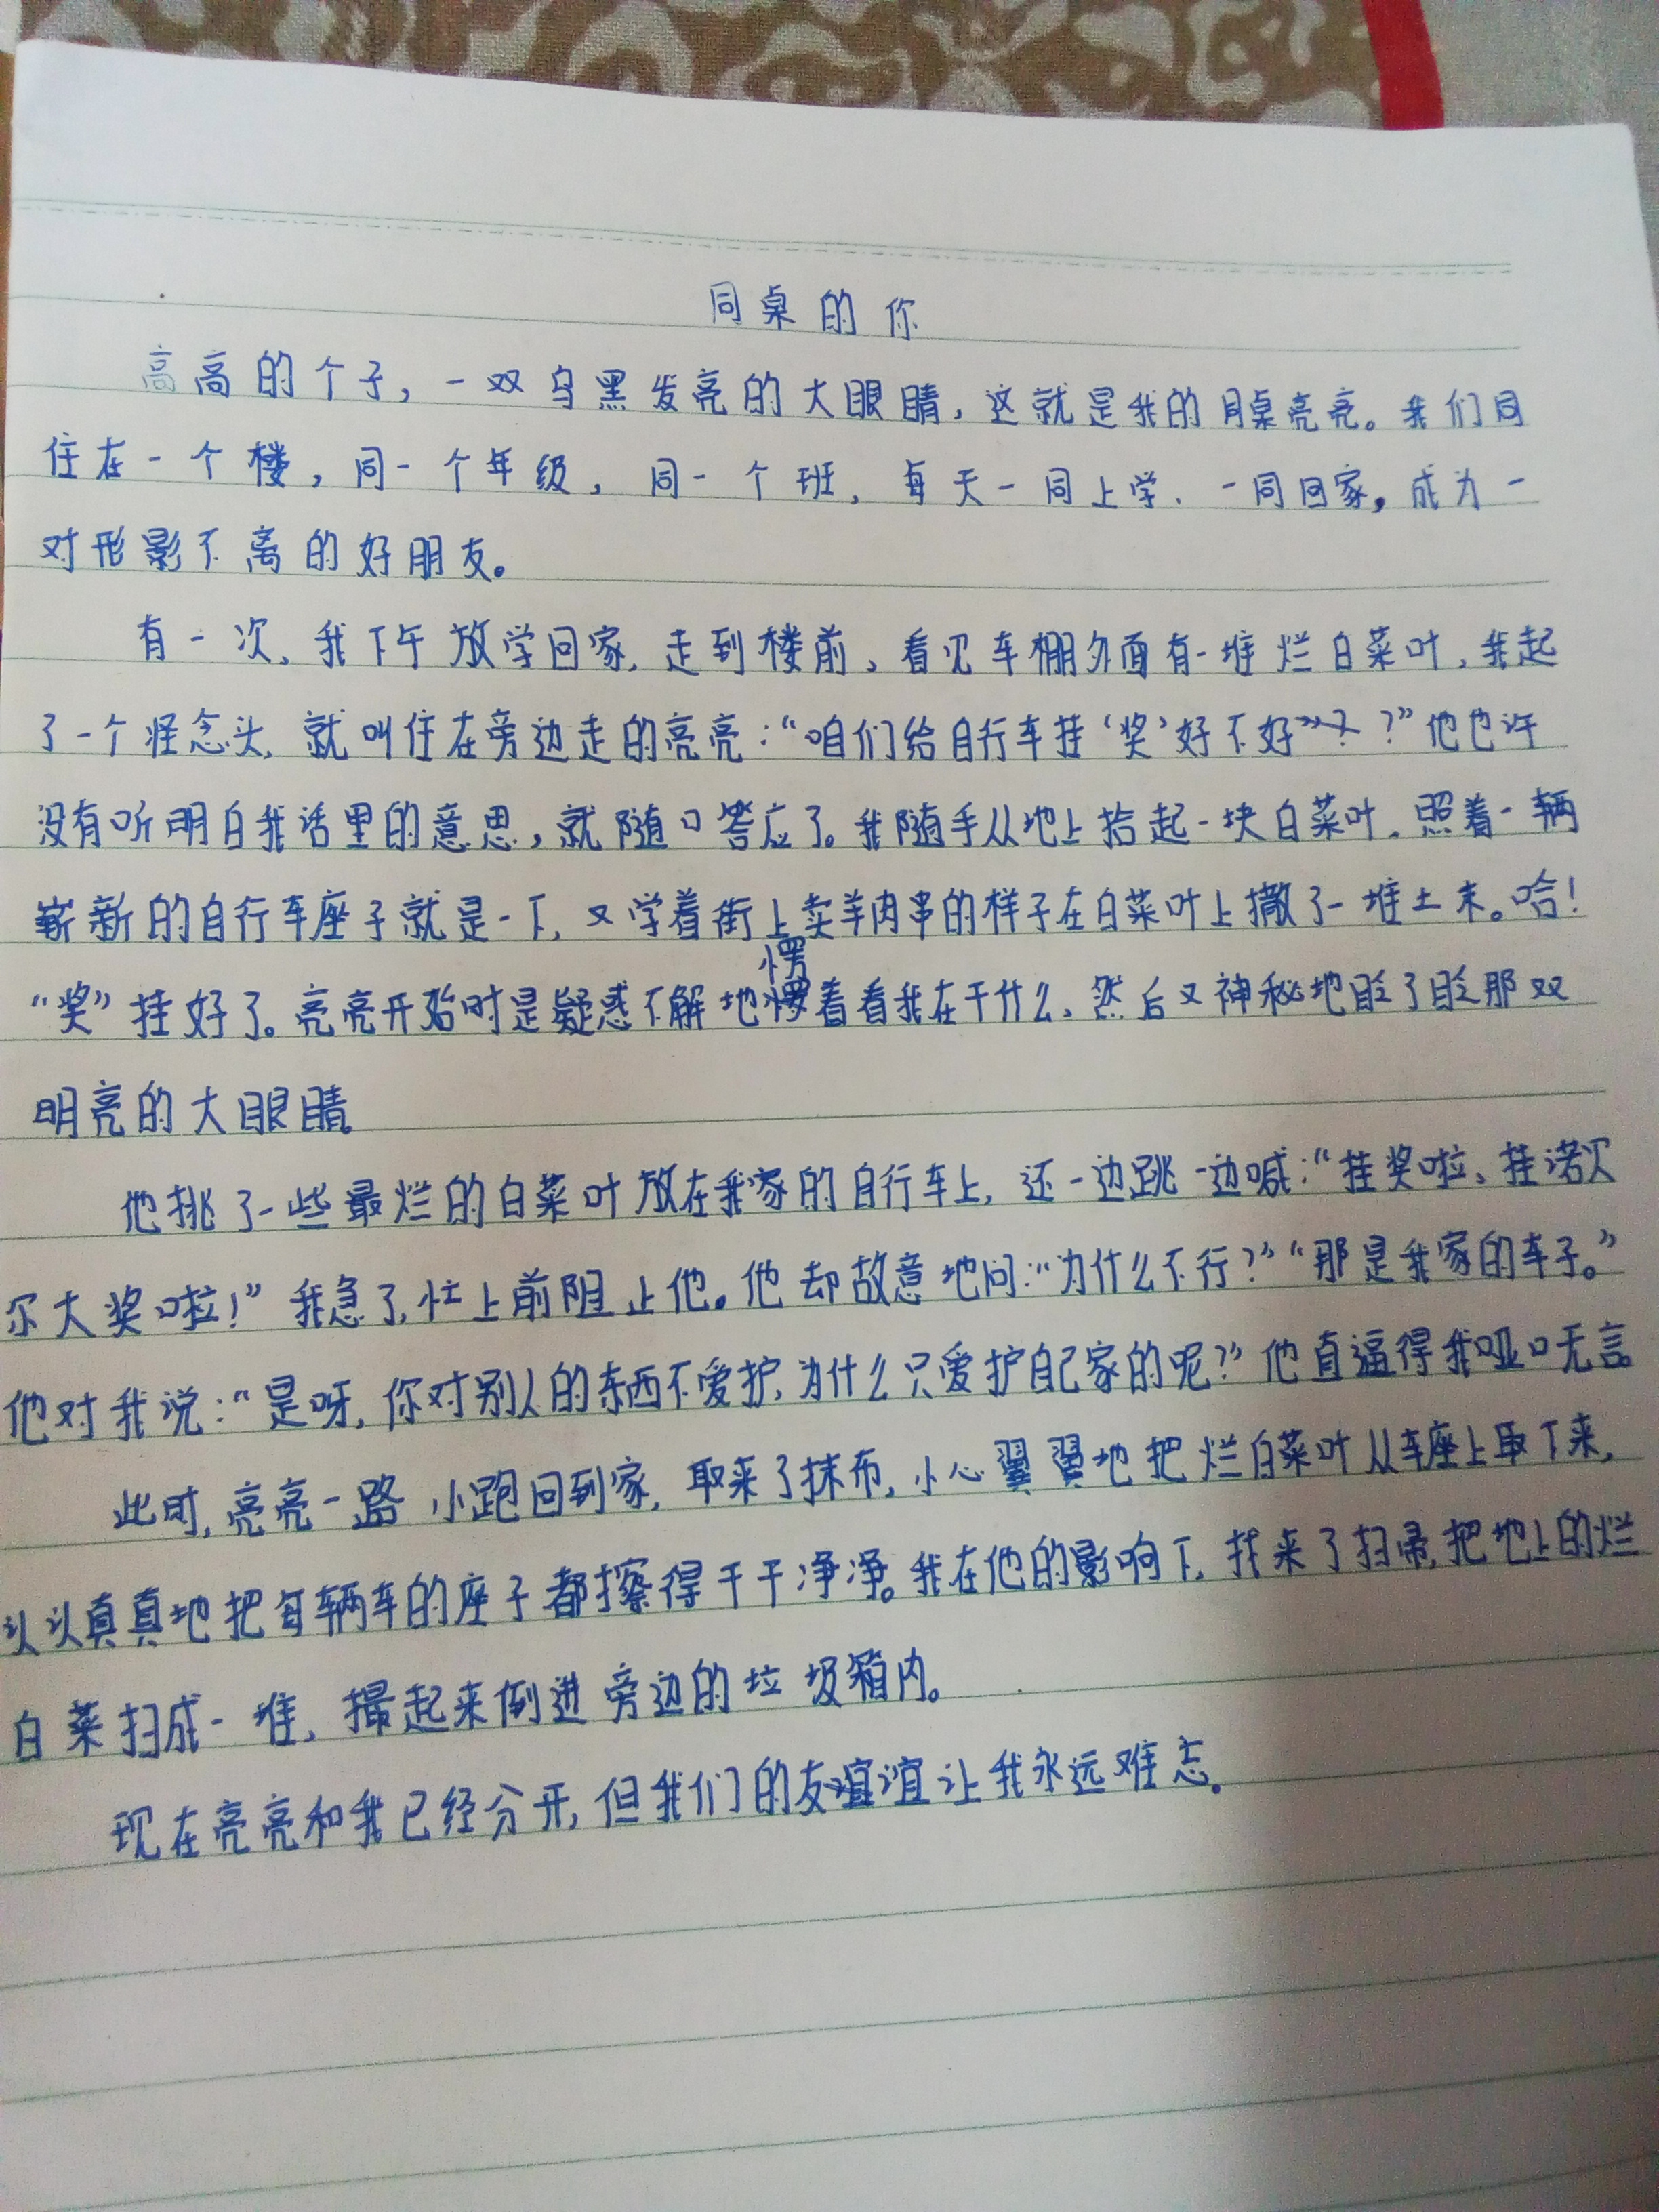 同桌的你
高高的个子，一双乌黑发亮的大眼睛，这就是我的同桌亮亮。我们同
住在一个楼，同一个年级，同一个班，每天一同上学、一同回家，成为一
对形影不离的好朋友。
有一次，我下午放学回家，走到楼前，看见车棚外面有一堆烂白菜叶，我起
了一个怪念头，就叫住在旁边走的亮亮：“咱们给自行车挂‘奖’好不好？”他也许
没有听明白我话里的意思，就随口答应了。我随手从地上拾起一块白菜叶，照着一辆
崭新的自行车座子就是一下，又学着街上卖羊肉串的样子在白菜叶上撒了一堆土末。哈！
“奖”挂好了。亮亮开始时是疑惑不解地愣着看我在干什么，然后又神秘地眨了眨那双
明亮的大眼睛。
他挑了一些最烂的白菜叶放在我家的自行车上，还一边跳一边喊：“挂奖啦，挂诺贝
尔大奖啦！”我急了，忙上前阻止他。他却故意地问：“为什么不行？”“那是我家的车子。”
他对我说：“是呀，你对别人的东西不爱护，为什么只爱护自己家的呢？”他直逼得我哑口无言
此时，亮亮一路小跑回到家，取来了抹布，小心翼翼地把烂白菜叶从车座上取下来，
认认真真地把每辆车的座子都擦得干干净净。我在他的影响下，找来了扫帚，把地上的烂
白菜扫成一堆，撮起来倒进旁边的垃圾箱内。
现在亮亮和我已经分开，但我们的友谊谊让我永远难忘。